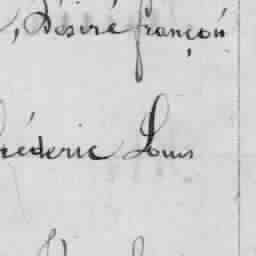 , Désiré françois
rédéric Louis